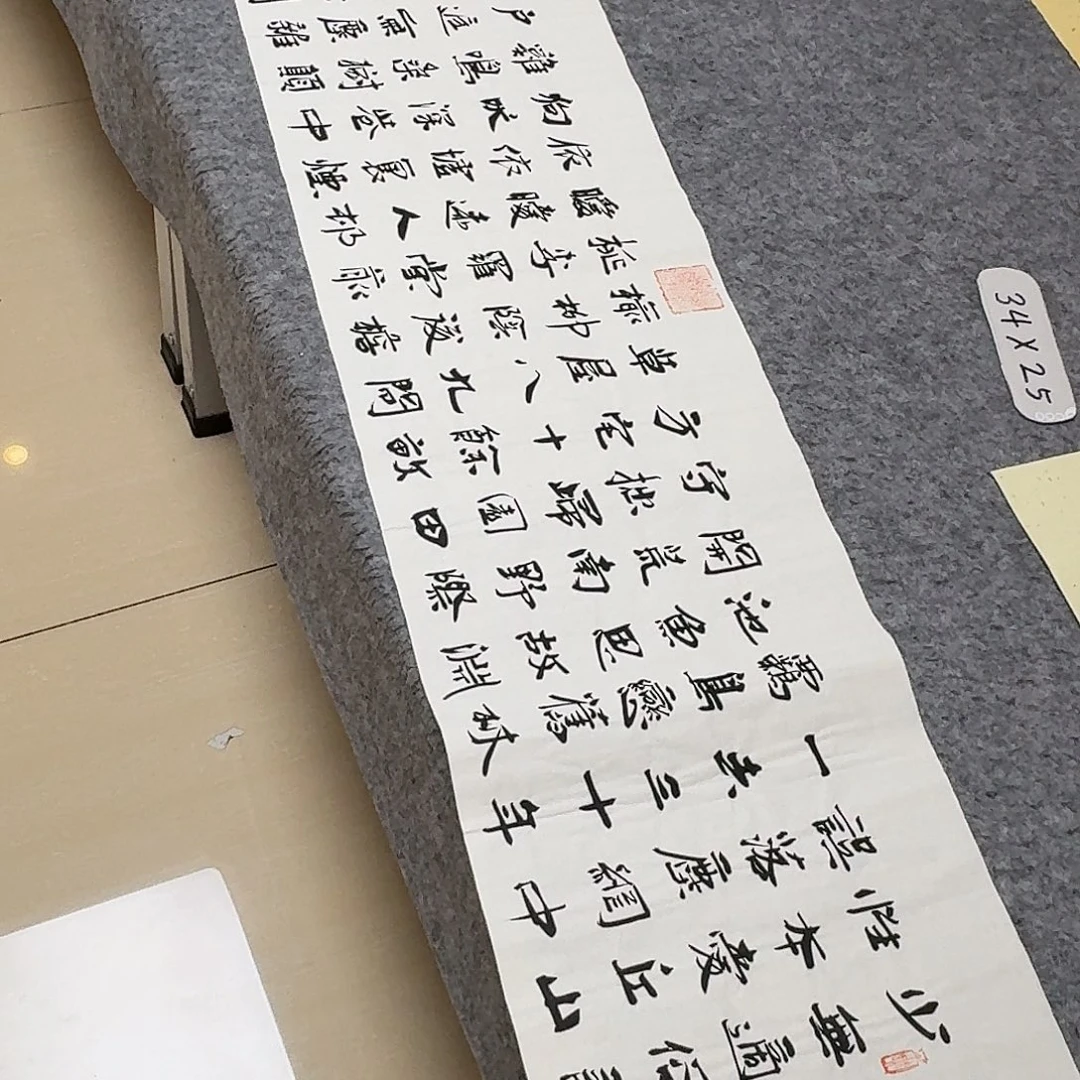 少無適俗韻
性本愛丘山
誤落塵網中
一去三十年
羈鳥戀舊林
池魚思故淵
開荒南野際
守拙歸園田
方宅十餘畝
草屋八九間
榆柳蔭後檐
桃李羅堂前
曖曖遠人村
依依墟里煙
狗吠深巷中
雞鳴桑樹顛
戶庭無塵雜
34×25